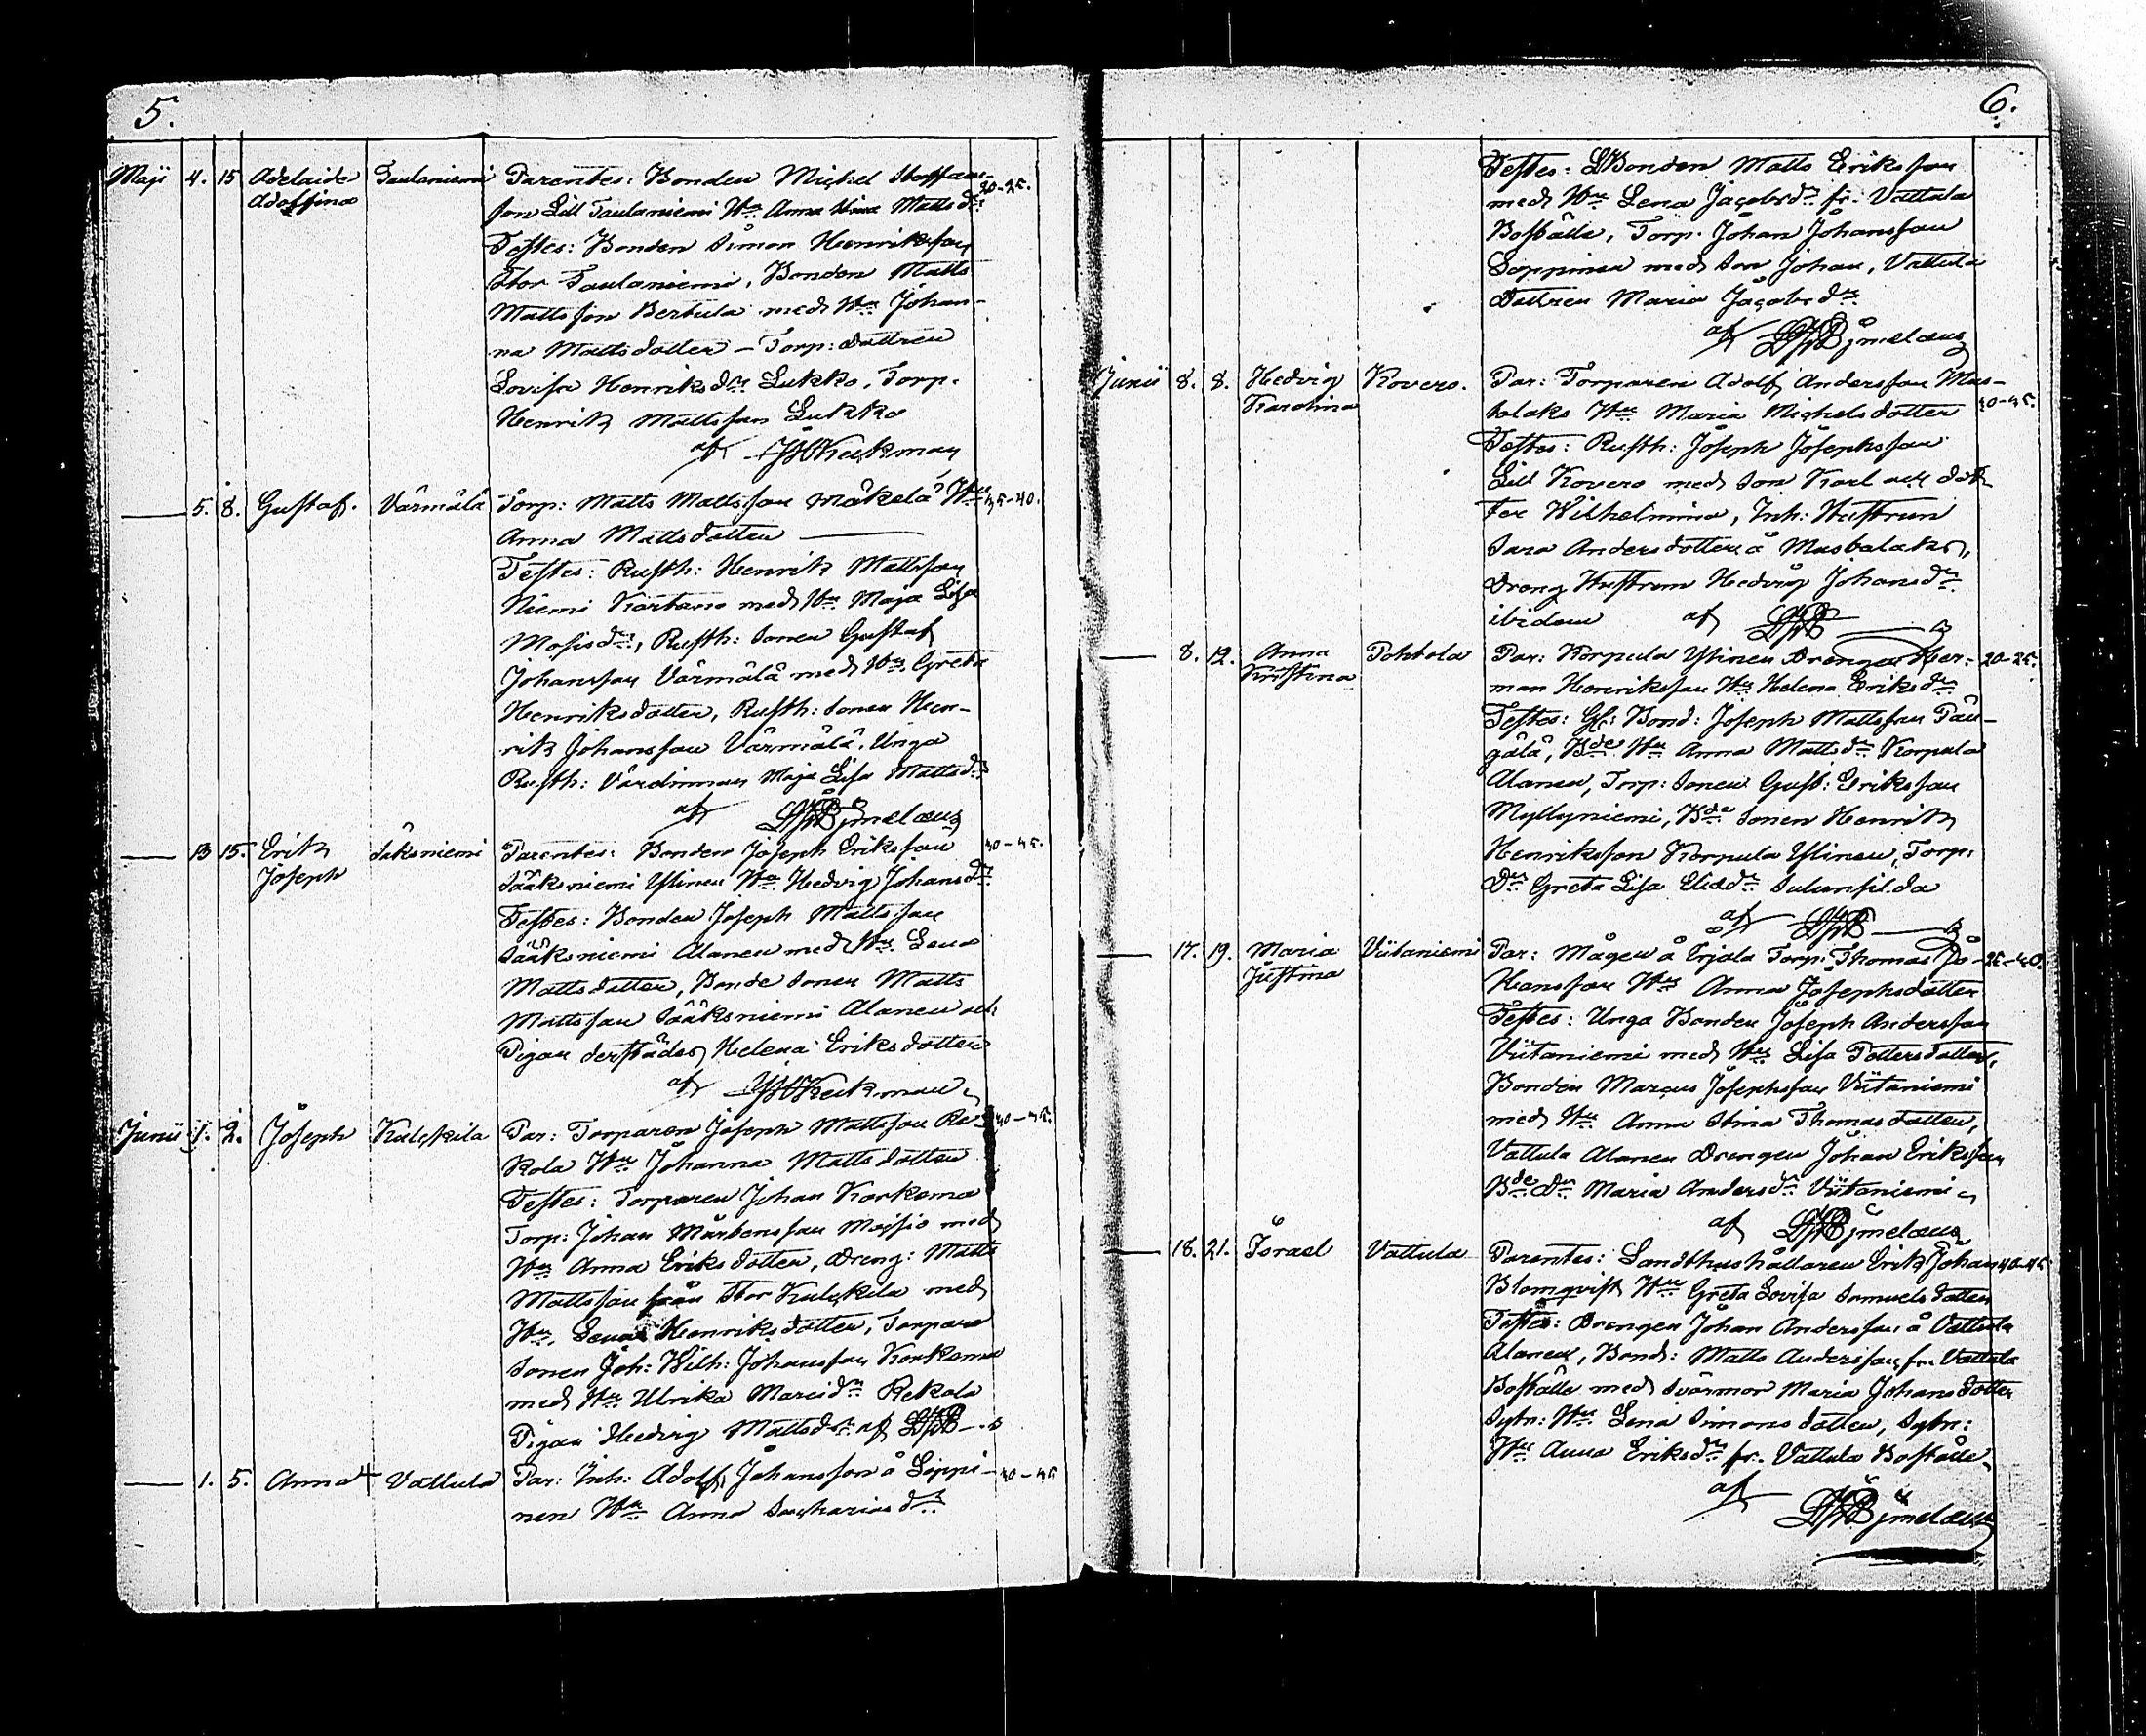 5.
Maji 4. 15 Adelaide Taulaniemi Parentes: Bonden Michel Staffans-
Adolfina son Lill Taulaniemi Hu Anna Stina Matts dr 20-25.
Testes: Bonden Simon Henriksson
Stor Taulaniemi, Bonden Matts
Mattsson Bertula med Hu Johan-
na Mattsdotter – Torp: dottren
Lovisa Henriks dr Lukko, Torp.
Henrik Mattsson Lukko
af
5. 8. Gustaf. Värmälä Torp: Matts Mattsson Mäkelä Hu 35-40.
Anna Mattsdotter
Testes: Rusth: Henrik Mattsson
Niemi Kartano med Hu Maja Lisa
Mosis dr, Rusth: sonen Gustaf
Johansson Värmälä med Hu Greta
Henriksdotter, Rusth: sonen Hen-
rik Johansson Värmälä. Unga
Rusth: Värdinnan Maja Lisa Matts dr
af
13 15. Erik Säksniemi Parentes: Bonden Joseph Eriksson 40-45.
Joseph Sääksniemi Ylinen Hu Hedvig Johans dr
Testes: Bonden Joseph Mattsson
Sääksniemi Alanen med Hu Lena
Mattsdotter, Bonde sonen Matts
Mattsson Sääksniemi Alanen och
Pigan derstädes Helena Eriksdotter
af
Junii 1. 2. Joseph Kulckila Par: Torparen Joseph Mattsson Re-
kola Hu Johanna Mattsdotter
Testes: Torparen Johan Korkoma
Torp: Johan Mårtensson Moisio med
Hu Anna Eriksdotter, Dreng: Matts
Mattsson från Stor Kulckila med
Hu Lena Henriksdotter, Torpare
sonen Joh: Wilh: Johansson Korkoma
med Hu Ulrika Marci dr Rekola
Pigan Hedvig Matts dr af
1. 5. Anna + Vattula Par: Inh: Adolf Johansson å Leppi- 40-45
nen Hu Anna Sacharias dr
6.
Testes: Bonden Matts Eriksson
med Hu Lena Jacobs dr fr: Vattula
Boställe, Torp. Johan Johansson
Leppinen med son Johan, Vattula
Dottren Maria Jacobs dr
af
Junii 8. 8. Hedvig Kovero. Par: Torparen Adolf Andersson Mus-
Karolina talaks Hu Maria Michelsdotter 40-45.
Testes: Rusth: Joseph Josephsson
Lill Kovero med son Karl och dot-
ter Wilhelmina, Inh: Hustrun
Sara Andersdotter å Mustalaks,
Dreng Hustrun Hedvig Johans dr
ibidem af
8. 12. Anna Pohtola Par: Korpula Ylinen Drengen Her- 20-25.
Kristina man Henriksson Hu Helena Eriks dr
Testes: Gl: Bond: Joseph Mattsson Pän-
gälä, Bde Hu Anna Matts dr Korpula
Alanen, Torp: sonen Gust: Eriksson
Myllyniemi, Bde sonen Henrik
Henriksson Korpula Ylinen, Torp:
Dr Greta Lisa Elias dr Sulunsilda
af
17. 19. Maria Viitaniemi Par: Mågen å Erjala Torp: Thomas Jo-
Justina hansson Hu Anna Josephsdotter
Testes: Unga Bonden Joseph Andersson
Viitaniemi med Hu Lisa Pettersdotter,
Bonden Marcus Josephsson Viitaniemi
med Hu Anna Stina Thomasdotter,
Vattula Alanen Drengen Johan Eriksson
Bde Dr Maria Anders dr Viitaniemi
af
18. 21. Israel Vattula Parentes: Landthushållaren Erik Johan 40-45
Blomqvist Hu Greta Lovisa Samuelsdotter
Testes: Drengen Johan Andersson å Vattula
Alanen, Bond: Matts Andersson fr. Vattula
Boställe med Svärmor Maria Johansdotter
Sytn: Hu Lena Simonsdotter, Sytn:
Hu Anna Eriks dr fr. Vattula Boställe
af